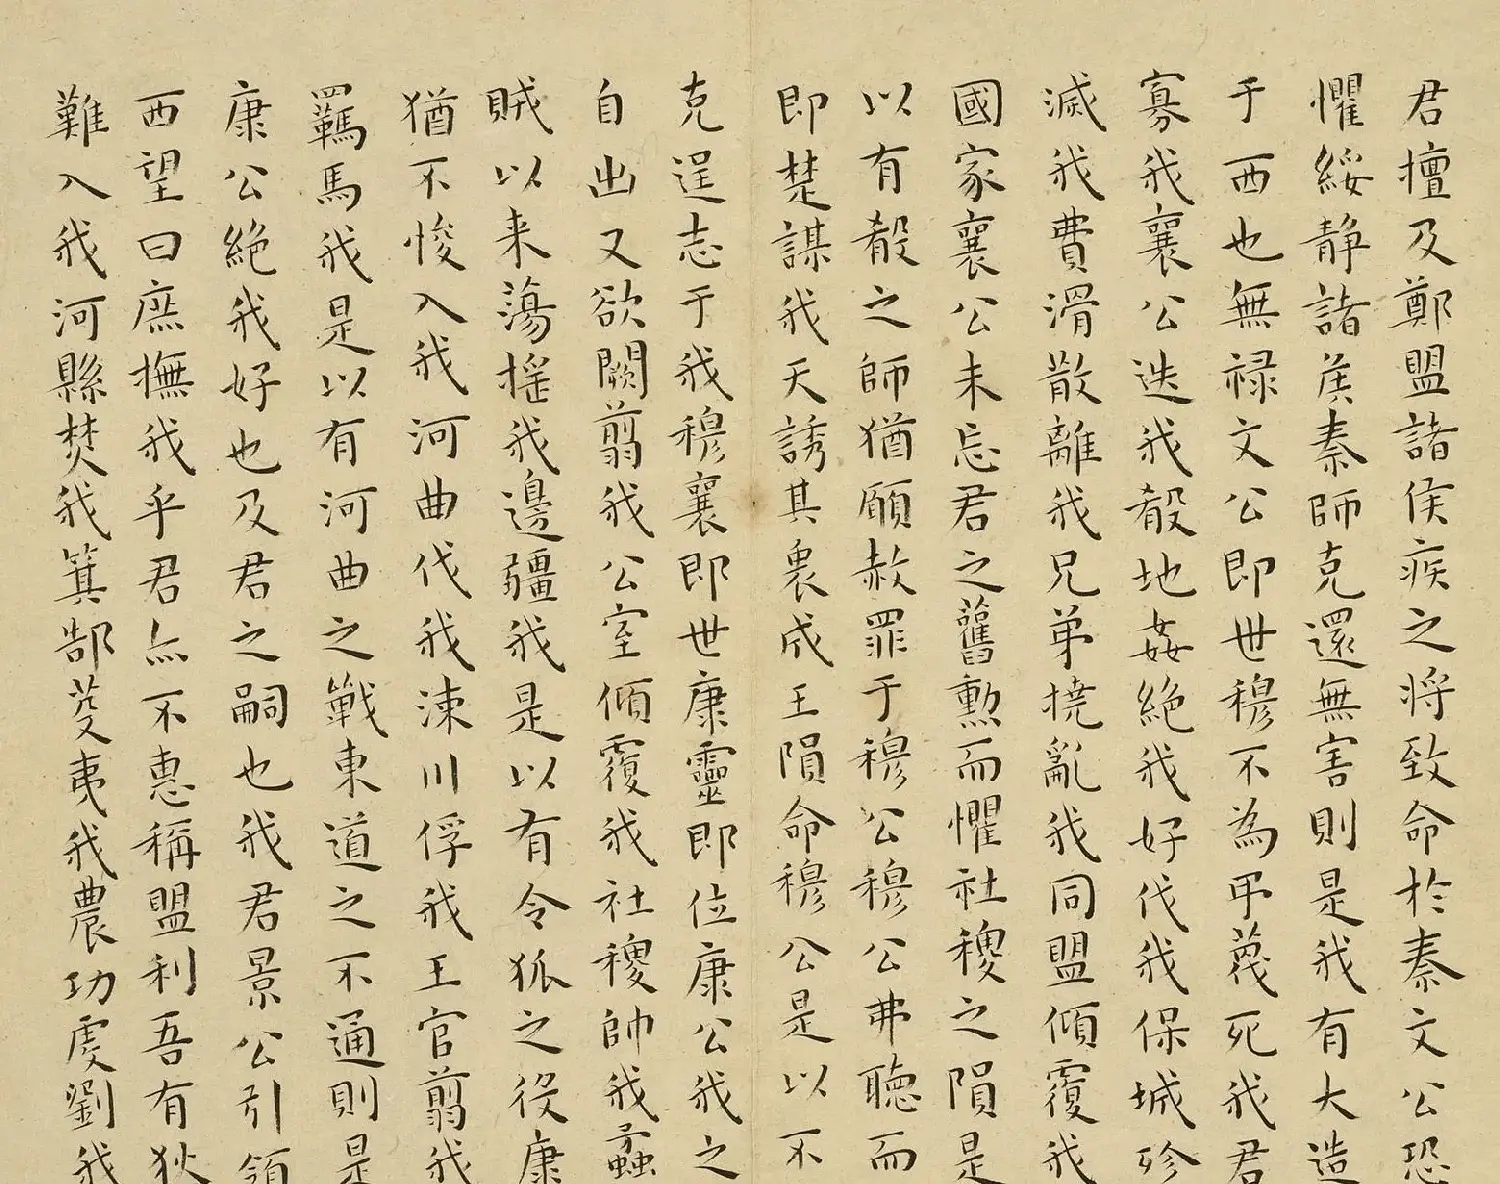 君擅及鄭盟諸侯疾之将致命於秦文公恐
懼綏静諸矦秦師克還無害則是我有大造
于西也無禄文公即世穆不為弔蔑死我君
寡我襄公迭我殽地姦絶我好伐我保城殄
滅我費滑散離我兄弟撓亂我同盟傾覆我
國家襄公未忘君之舊勲而懼社稷之隕是
以有殽之師猶願赦罪于穆公穆公弗聽而
即楚謀我天誘其衷成王隕命穆公是以不
克逞志于我穆襄即世康靈即位康公我之
自出又欲闕翦我公室傾覆我社稷帥我蟊
賊以来蕩摇我邊疆我是以有令狐之役康
猶不悛入我河曲伐我涑川俘我王官翦我
羈馬我是以有河曲之戰東道之不通則是
康公絶我好也及君之嗣也我君景公引領
西望曰庶撫我乎君亦不惠稱盟利吾有狄
難入我河縣焚我箕郜芟夷我農功虔劉我